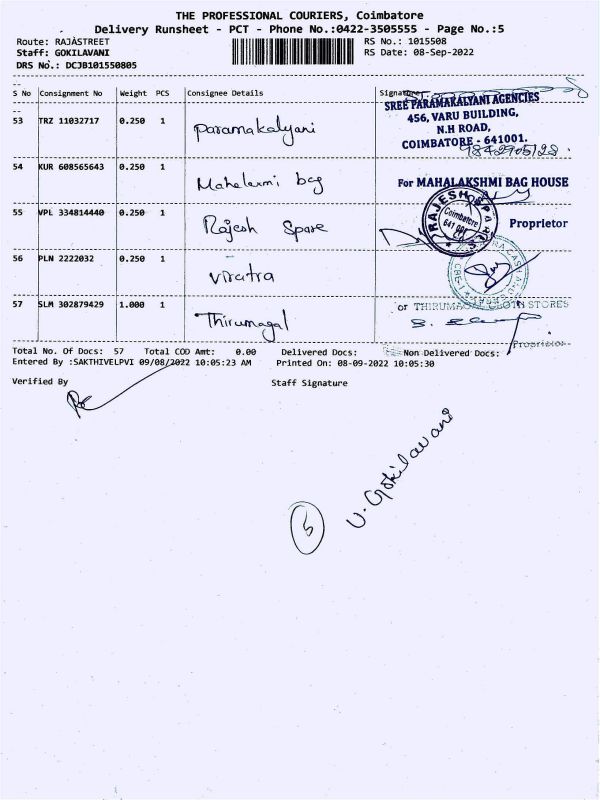 THE PROFESSIONAL COURIERS, Coimbatore
Delivery Runsheet - PCT - Phone No.:0422-3505555 - Page No.:5
Route: RAJASTREET RS No.: 1015508
Staff: GOKILAVANI RS Date: 08-Sep-2022
DRS No.: DCJB101550805
S No Consignment No Weight PCS Consignee Details Signature
53 TRZ 11032717 0.250 1 Paramakalyani
SREE PARAMAKALYANI AGENCIES
456, VARU BUILDING,
N.H ROAD,
COIMBATORE - 641001.
9842905128
54 KUR 608565643 0.250 1 Mahalaxmi bag
For MAHALAKSHMI BAG HOUSE
Proprietor
55 VPL 334814440 0.250 1 Rajesh Spare
RAJESH SPARES
Coimbatore
56 PLN 2222032 0.250 1 Viratra
57 SLM 302879429 1.000 1 Thirumagal
or THIRUMAGAL CLOTH STORES
Proprietor
Total No. Of Docs: 57 Total COD Amt: 0.00 Delivered Docs: Non Delivered Docs:
Entered By :SAKTHIVELPVI 09/08/2022 10:05:23 AM Printed On: 08-09-2022 10:05:30
Verified By Staff Signature
U. Gokilavani
5